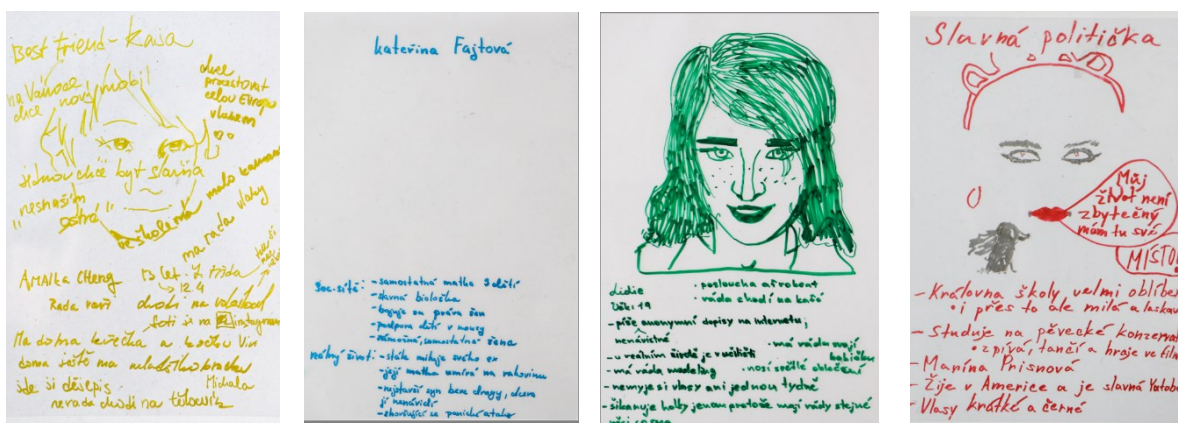 Best friend - Kája
na Vánoce
chce nový mobil
chce
procestovat
celou Evropu
vlakem
Jednou chce být slavná
nesnáším
ostrá
málo kamar
má ráda vlaky
AMálka CHeng
13 let 7. třída
12 4
Ráda vaří
chodí na volejball
fotí si na instagram
Má doma křečka a kočku Vin
doma ještě má mladšího bratra
Michala
jde jí dějepis
nerada chodí na tělocvik
kateřina Fajtová
Soc. sítě: - samostatná matka 3 dětí
- slavná bioložka
- bojuje za práva žen
- podpora dětí v nouzi
- výmořná, samostatná žena
reálný život: - stále miluje svého ex
- její matka umírá na rakovinu
- nejstarší syn bere drogy, dcera
jí nenávidí
- zhoršující se panické ataky
Lidie
Věk: 19
• poslouchá afrobeat
• ráda chodí na kafe
- píše anonymní dopisy na internetu,
nenávistné
• má ráda svojí
babičku
- v reálném životě je v učilišti
- má ráda modeling
• nosí světlé oblečení
- nemyje si vlasy ani jednou týdně
- šikanuje holky jenom protože mají vždy stejné
Slavná politička
Můj
život není
zbytečný
mám tu své
MÍSTO!
- Královna školy velmi oblíben
• i přes to ale milá a laskav
- Studuje na pěvecké konzervat
• zpívá, tančí a hraje ve film
- Marína Prisnová
- Žije v Americe a je slavná Yutube
- Vlasy krátké a černé